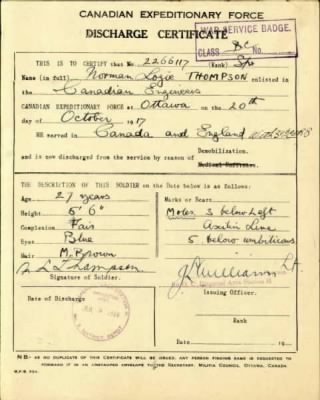 CANADIAN EXPEDITIONARY FORCE
DISCHARGE CERTIFICATE
WAR SERVICE BADGE.
CLASS
THIS IS TO CERTIFY that No. 2266117 (Rank) Spr
Name (in full) Norman Logie THOMPSON enlisted in
the Canadian Engineers
CANADIAN EXPEDITIONARY FORCE at Ottawa on the 20th
day of October 1917
HE served in Canada and England
and is now discharged from the service by reason of Demobilization.
Medical Unfitness.
THE DESCRIPTION OF THIS SOLDIER on the Date below is as Follows:
Age 27 years
Height 5' 6"
Complexion Fair
Eyes Blue
Hair M. Brown
Signature of Soldier.
Marks or Scars
Moles 3 below left
Axilla Line
5 below umbilicus
Lt.
Issuing Officer.
Rank
Date of Discharge
Date 19
NB:- AS NO DUPLICATE OF THIS CERTIFICATE WILL BE ISSUED, ANY PERSON FINDING SAME IS REQUESTED TO
FORWARD IT IN AN UNSTAMPED ENVELOPE TO THE SECRETARY, MILITIA COUNCIL, OTTAWA, CANADA.